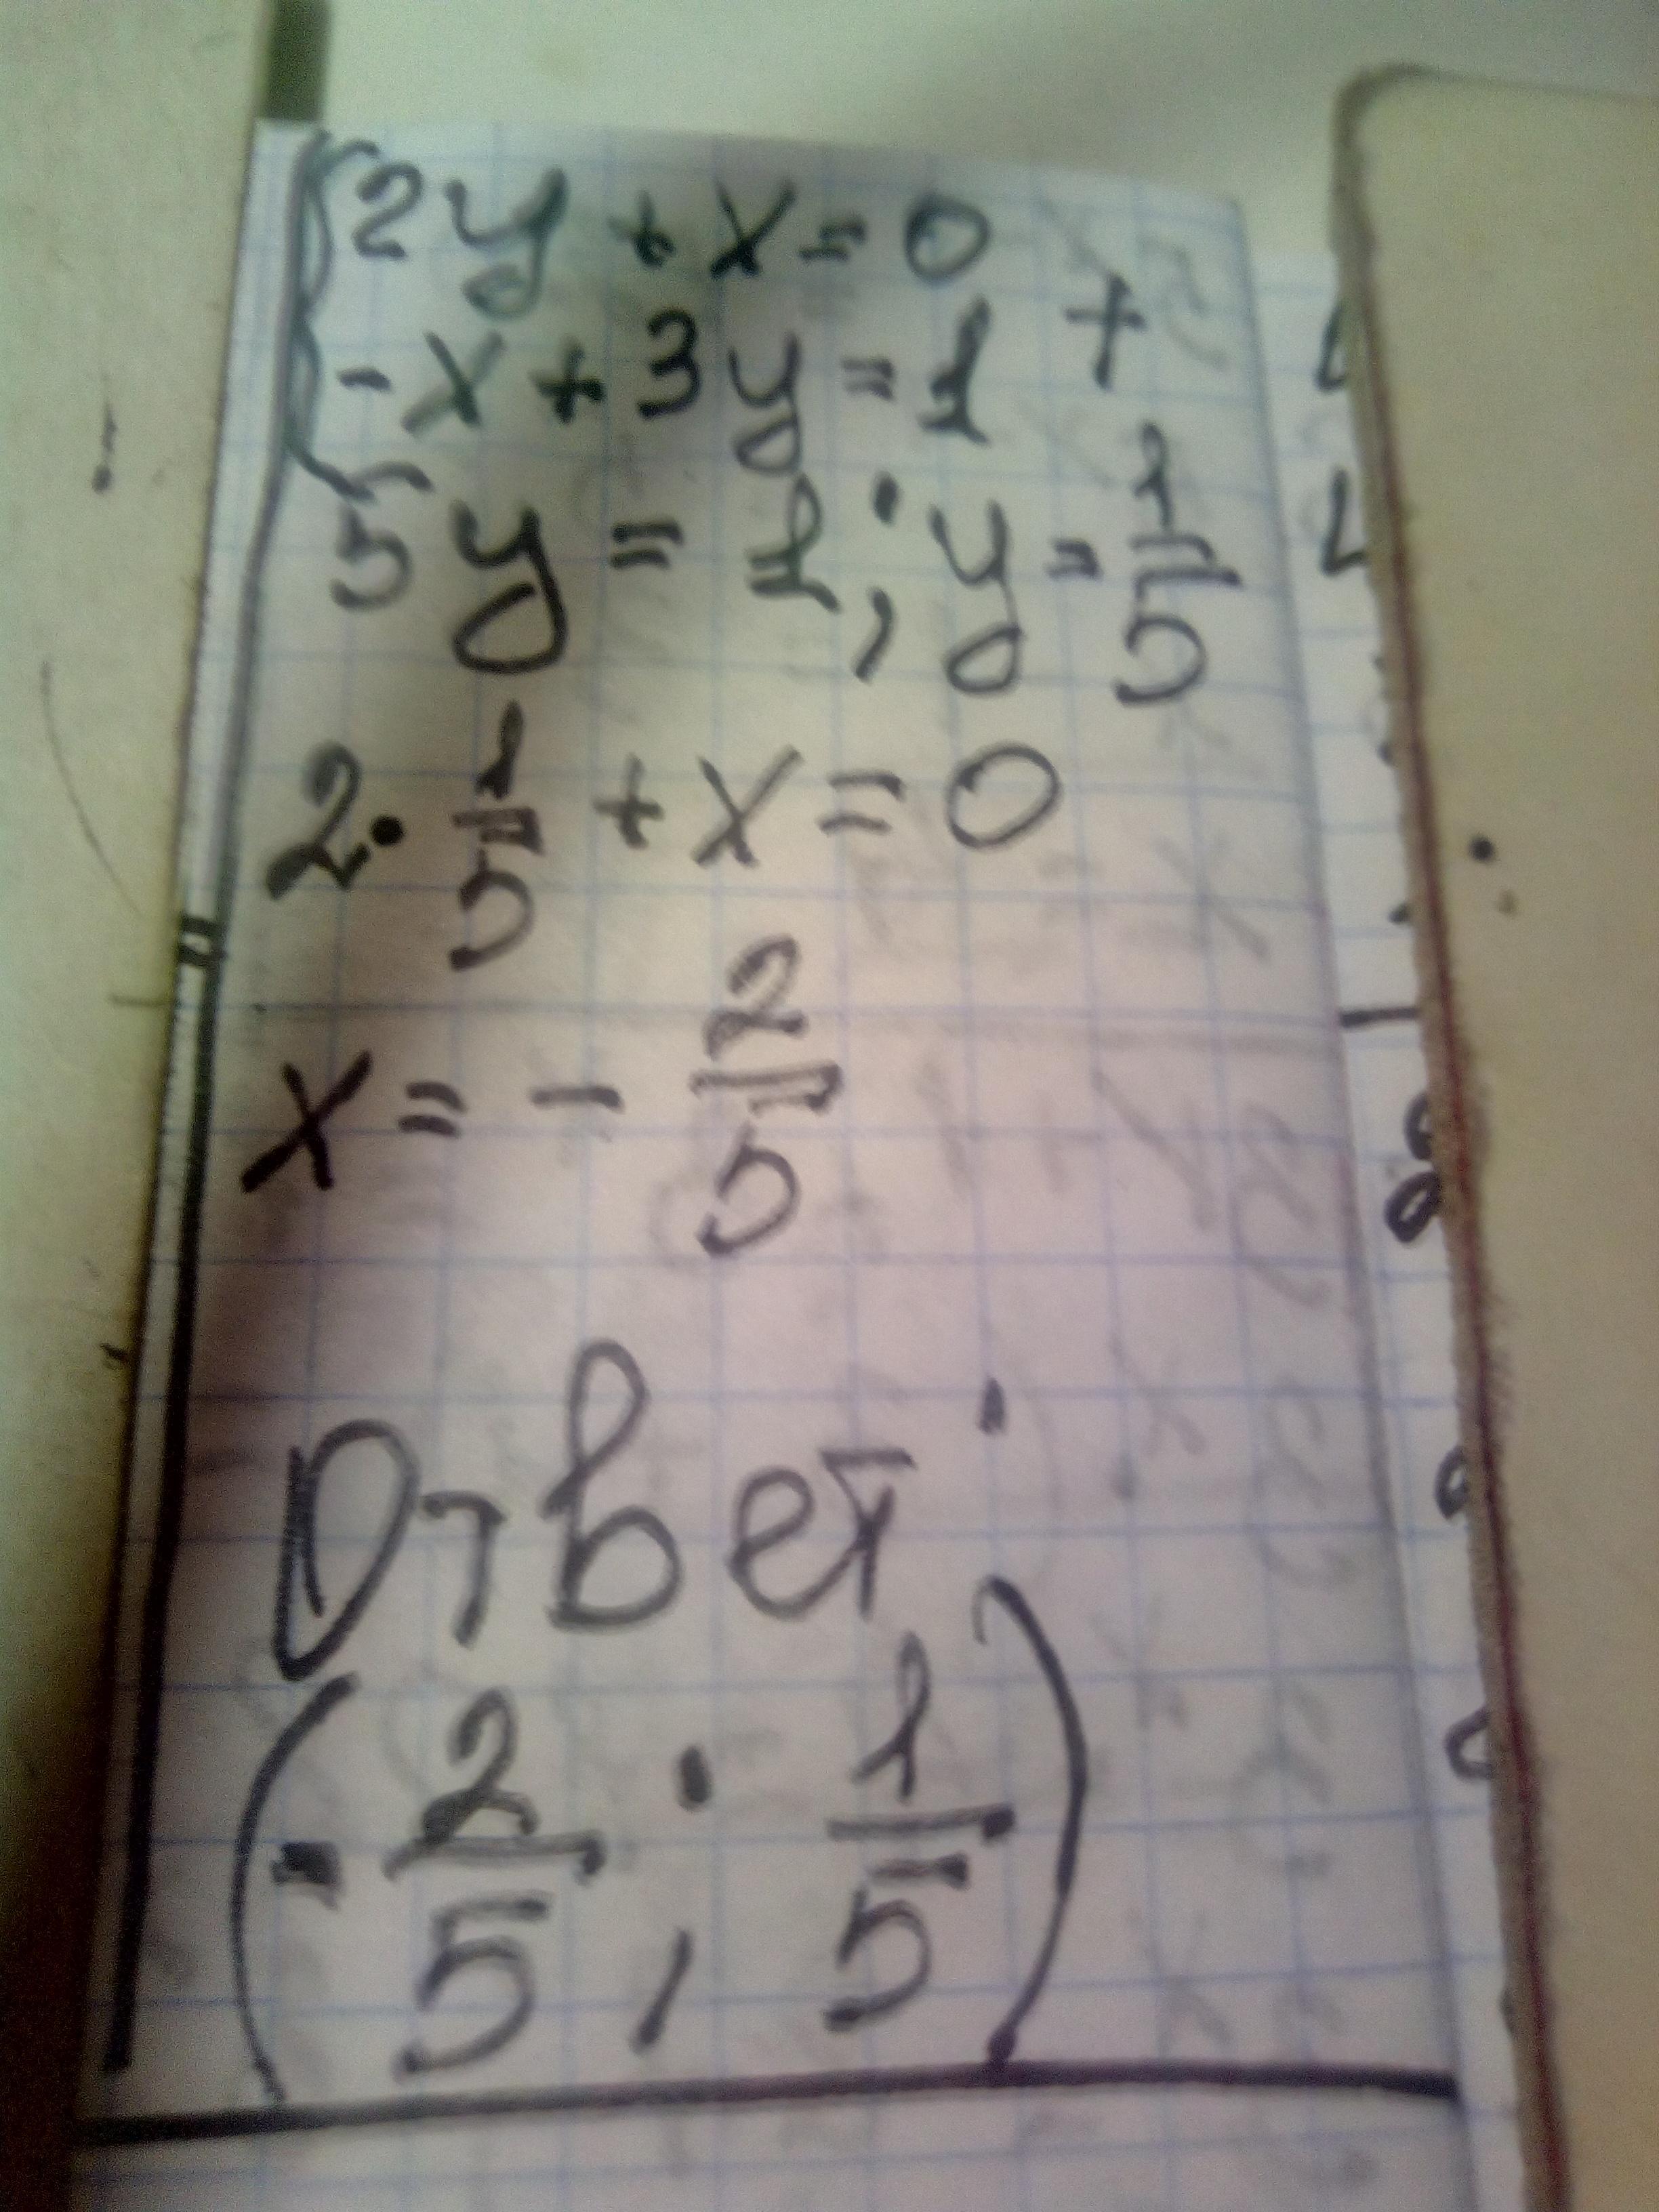 {2y + x = 0
-x + 3y = 1 +
5y = 1; y = 1/5
2 · 1/5 + x = 0
x = - 2/5
Ответ:
(- 2/5 ; 1/5)